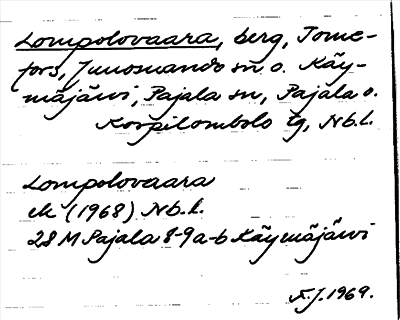 Lompolovaara, berg, Tome-
fors, Junosuando sn o. Käy-
mäjärvi, Pajala sn, Pajala o.
Korpilombolo tg, Nb.l.
Lompolovaara
ek (1968) Nb.l.
28 M Pajala 8-9 a-b Käymäjärvi
F.J. 1969.